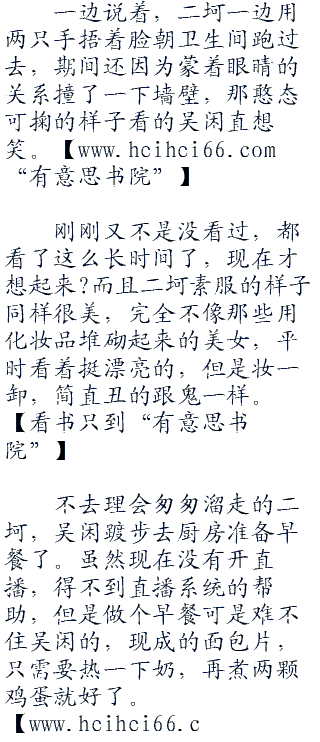 一边说着，二坷一边用
两只手捂着脸朝卫生间跑过
去，期间还因为蒙着眼睛的
关系撞了一下墙壁，那憨态
可掬的样子看的吴闲直想
笑。【www.hcihci66.com
“有意思书院”】
刚刚又不是没看过，都
看了这么长时间了，现在才
想起来?而且二坷素服的样子
同样很美，完全不像那些用
化妆品堆砌起来的美女，平
时看着挺漂亮的，但是妆一
卸，简直丑的跟鬼一样。
【看书只到“有意思书
院”】
不去理会匆匆溜走的二
坷，吴闲踱步去厨房准备早
餐了。虽然现在没有开直
播，得不到直播系统的帮
助，但是做个早餐可是难不
住吴闲的，现成的面包片，
只需要热一下奶，再煮两颗
鸡蛋就好了。
【www.hcihci66.c